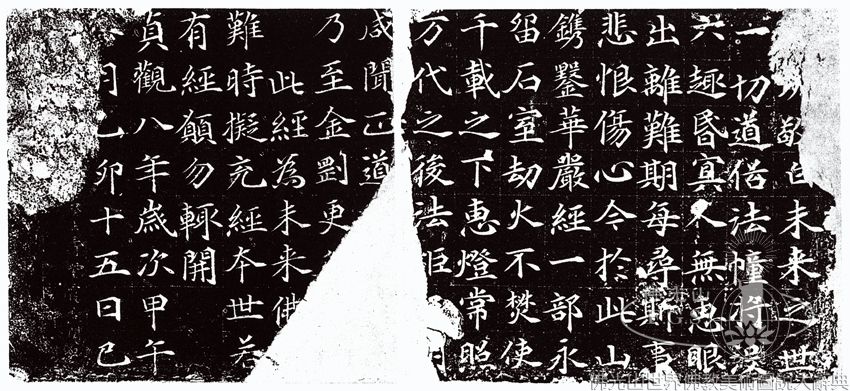 敬白未来之世
一切道俗法幢將没
六趣昏冥人無惠眼
出離難期每尋斯事
悲恨傷心今於此山
鐫鑿華嚴經一部永
留石室劫火不焚使
千載之下惠燈常照
万代之後法炬明
咸聞正道
乃至金剛更
此經為未来佛
難時擬充經本世若
有經願勿輙開
貞觀八年歲次甲午
月乙卯十五日己
佛光山世界佛教美術圖說大辭典